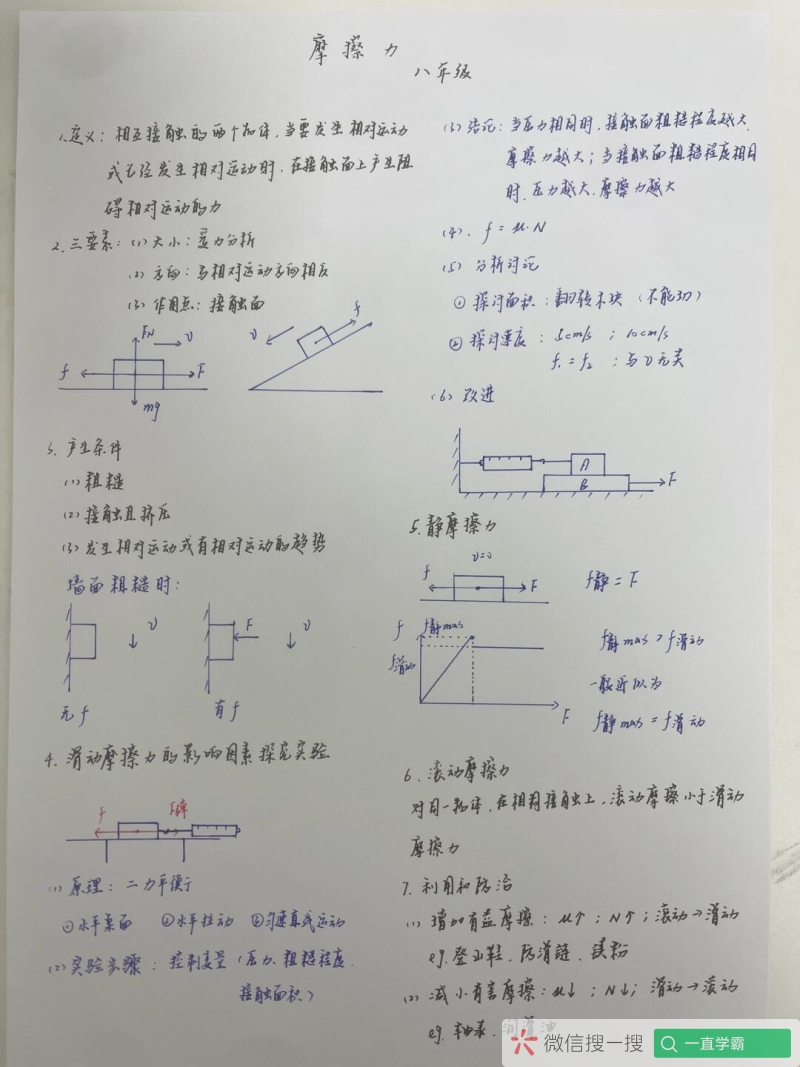 摩擦力
八年级
1.定义：相互接触的两个物体，当要发生相对运动
或已经发生相对运动时，在接触面上产生阻
碍相对运动的力
2.三要素：(1)大小：受力分析
(2)方向：与相对运动方向相反
(3)作用点：接触面
FN
v
f
F
mg
v
f
3.产生条件
(1)粗糙
(2)接触且挤压
(3)发生相对运动或有相对运动的趋势
墙面粗糙时：
v
F
v
无f
有f
4.滑动摩擦力的影响因素探究实验
f
(1)原理：二力平衡
①水平桌面 ②水平拉动 ③匀速直线运动
(2)实验步骤：控制变量（压力、粗糙程度、
接触面积）
(3)结论：当压力相同时，接触面粗糙程度越大，
摩擦力越大；当接触面粗糙程度相同
时，压力越大，摩擦力越大
(4). f=μ·N
(5) 分析讨论
①探讨面积：翻转木块（不能切）
②探讨速度：5cm/s ；10cm/s
f₁=f₂ ；与v无关
(6)改进
A
B
F
5.静摩擦力
v=0
f
F
f静=F
f
f静max
f滑动
F
f静max>f滑动
一般近似为
f静max=f滑动
6.滚动摩擦力
对同一物体，在相同接触上，滚动摩擦小于滑动
摩擦力
7.利用和防治
(1)增加有益摩擦：μ↑；N↑；滚动→滑动
eg.登山鞋、防滑链、镁粉
(2)减小有害摩擦：μ↓；N↓；滑动→滚动
eg.轴承、润滑油
微信搜一搜
一直学霸